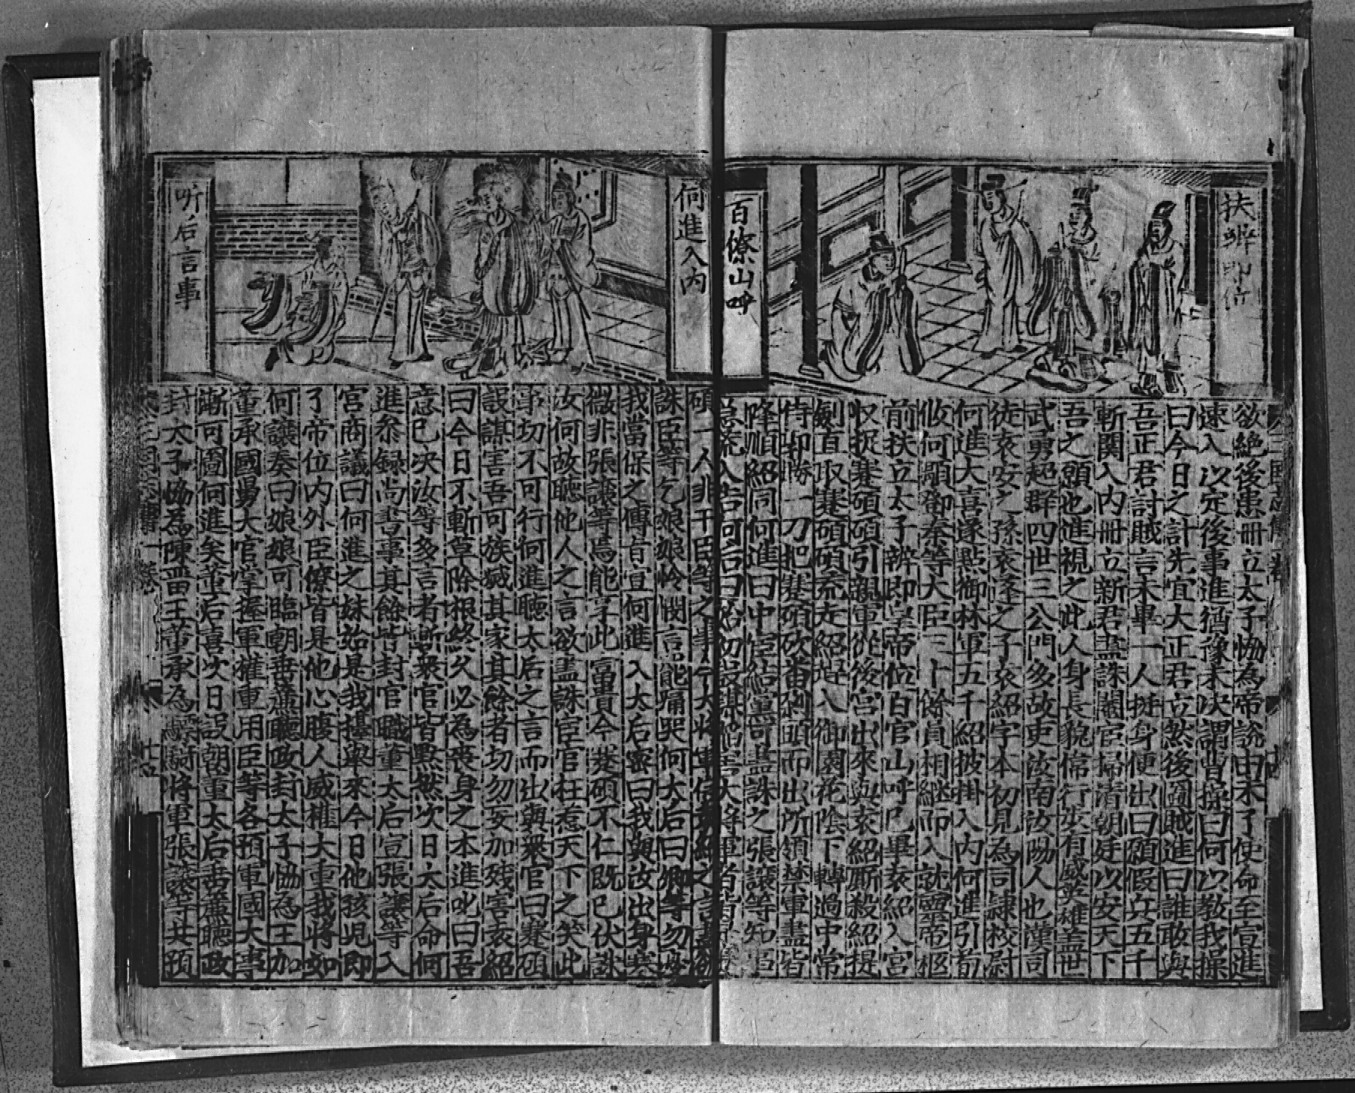 扶
即位
百僚山呼
欲絶後患冊立太子恊為帝說由未了使命至宣進
速入以定後事進猶豫未决謂曹操曰何以教我操
曰今日之計先宜大正君立然後圖賊進曰誰敢與
吾正君討賊言未畢一人挺身便出曰願假兵五千
斬関入内冊立新君盡誅閹官掃清朝廷以安天下
吾之願也進視之此人身長貌偉行步有威英雄盖世
武勇超群四世三公門多故吏汝南汝陽人也漢司
徒袁安之孫袁逢之子袁紹字本初見為司隷校尉
何進大喜遂㸃御林軍五千紹披掛入内何進引荀
攸何顒鄧泰等大臣三十餘員相継而入就靈帝柩
前扶立太子辨即皇帝位百官山呼已畢袁紹入宮
収捉蹇碩碩引親軍從後宮出來與袁紹厮殺紹提
劍直取蹇碩碩荒走紹趕入御園花陰下轉過中常
侍郭勝一刀把蹇碩砍番割頭而出所領禁軍盡皆
降順紹同何進曰中官結黨可盡誅之張讓等知事
急荒入告何后曰始初設謀陷害大將軍者皆是蹇
何進入内
听后言事
碩一人非干臣等之事今大將軍信袁紹之言盡欲
誅臣等乞娘娘怜憫言罷痛哭何太后曰卿等勿憂
我當保之傳旨宣何進入太后密曰我與汝出身寒
微非張讓等焉能享此富貴今蹇碩不仁既已伏誅
汝何故聽他人之言欲盡誅宦官枉惹天下之笑此
事切不可行何進聽太后之言而出與衆官曰蹇碩
設謀害吾可族滅其家其餘者切勿妄加殘害袁紹
曰今日不斬草除根終久必為喪身之本進叱曰吾
意已决汝等多言者斬衆官皆默然次日太后命何
進叅録尚書事其餘皆封官職董太后宣張讓等入
宮商議曰何進之妹始是我擡舉來今日他孩児即
了帝位内外臣僚皆是他心腹人威權太重我將如
何讓奏曰娘娘可臨朝垂簾聽政封太子恊為王加
董承國舅大官掌握軍權重用臣等各預軍國大事
漸可圖何進矣董后喜次日設朝董太后垂簾聽政
封太子恊為陳畱王董承為驃騎將軍張讓等共預